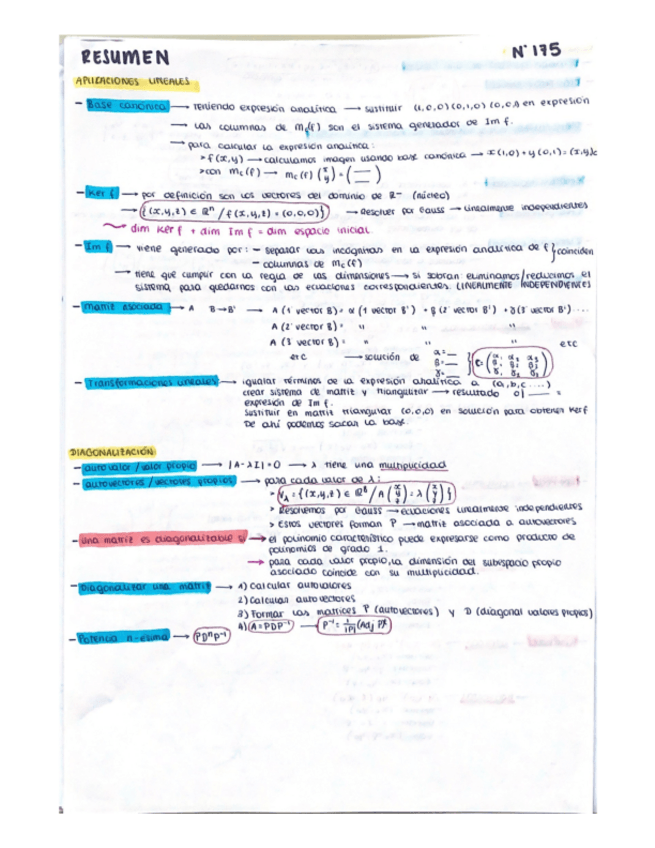 RESUMEN
Nº 175
APLICACIONES LINEALES
- Base canónica → Teniendo expresión analítica → sustituir (1,0,0) (0,1,0) (0,0,1) en expresión
→ Las columnas de mc(f) son el sistema generador de Im f.
→ para calcular la expresión analítica:
> f(x,y) → calculamos imagen usando base canónica → x(1,0) + y(0,1) = (x,y)c
> con mc(f) → mc(f) (x y) = (—)
- Ker f → por definición son los vectores del dominio de R⁻ (núcleo)
→ {(x,y,z) ∈ ℝⁿ / f(x,y,z) = (0,0,0)} → Resolver por Gauss → Linealmente independientes
dim Ker f + dim Im f = dim espacio inicial.
- Im f → viene generado por: - separar las incógnitas en la expresión analítica de f } coinciden
- columnas de mc(f)
→ tiene que cumplir con la regla de las dimensiones → si sobran eliminamos/reducimos el
sistema para quedarnos con las ecuaciones correspondientes. LINEALMENTE INDEPENDIENTES
- Matriz asociada → A B→B' → A (1º vector B) = α (1º vector B') + β (2º vector B') + γ (3º vector B') ...
A (2º vector B) = " " "
A (3º vector B) = " " " etc
etc → solución de α=— β=— γ=— } C= (α₁ α₂ α₃ β₁ β₂ β₃ γ₁ γ₂ γ₃)
- Transformaciones lineales → igualar términos de la expresión analítica a (a,b,c ....)
crear sistema de matriz y triangulizar → resultado 0| — =
expresión de Im f.
Sustituir en matriz triangular (0,0,0) en solución para obtener Kerf
De ahí podemos sacar la base.
DIAGONALIZACIÓN
- autovalor / valor propio → |A-λI| = 0 → λ tiene una multiplicidad
- autovectores / vectores propios → para cada valor de λ:
> Vλ = {(x,y,z) ∈ ℝ³ / A (x y z) = λ (x y z)}
> Resolvemos por Gauss → ecuaciones linealmente independientes
> Estos vectores forman P → matriz asociada a autovectores
- Una matriz es diagonalizable si → el polinomio característico puede expresarse como producto de
polinomios de grado 1.
→ para cada valor propio, la dimensión del subespacio propio
asociado coincide con su multiplicidad.
- Diagonalizar una matriz → 1) Calcular autovalores
2) Calcular autovectores
3) Formar las matrices P (autovectores) y D (diagonal valores propios)
4) A = PDP⁻¹ → P⁻¹ = 1/|P| (Adj P)ᵗ
- Potencia n-esima → PDⁿP⁻¹